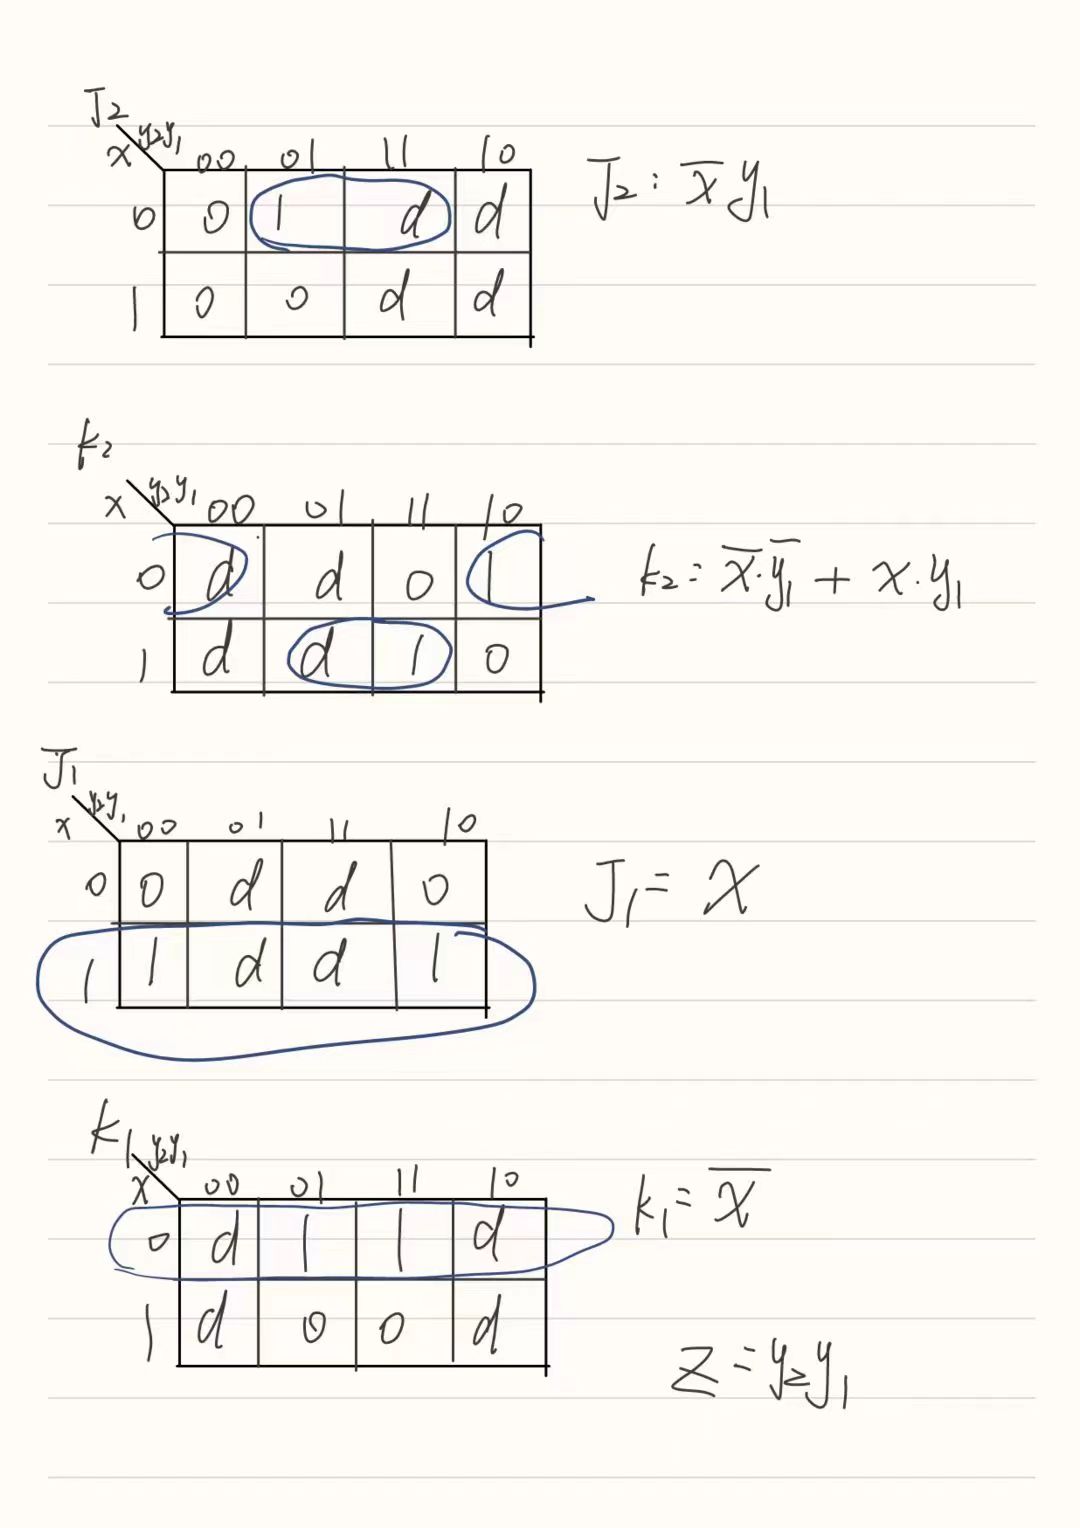 J₂
x y₂y₁ 00 01 11 10
0 0 1 d d
1 0 0 d d
J₂: x̅y₁
k₂
x y₂y₁ 00 01 11 10
0 d d 0 1
1 d d 1 0
k₂ = x̅·y̅₁ + x·y₁
J₁
x y₂y₁ 00 01 11 10
0 0 d d 0
1 1 d d 1
J₁ = x
k₁
x y₂y₁ 00 01 11 10
0 d 1 1 d
1 d 0 0 d
k₁ = x̅
Z = y₂y₁